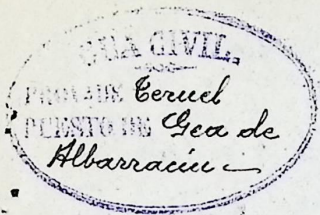 GRA CIVIL.
PROV. DE Teruel
PUESTO DE Gea de
Albarracín